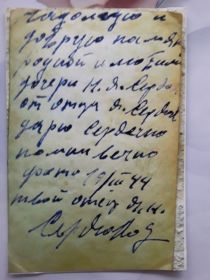 на долгую и
добрую память
родной и любим
дочери Н. Я. Сердю
от отца Я. Сердю
дарю сердечно
помни вечно
19/III 44
твой отец Я. Н.